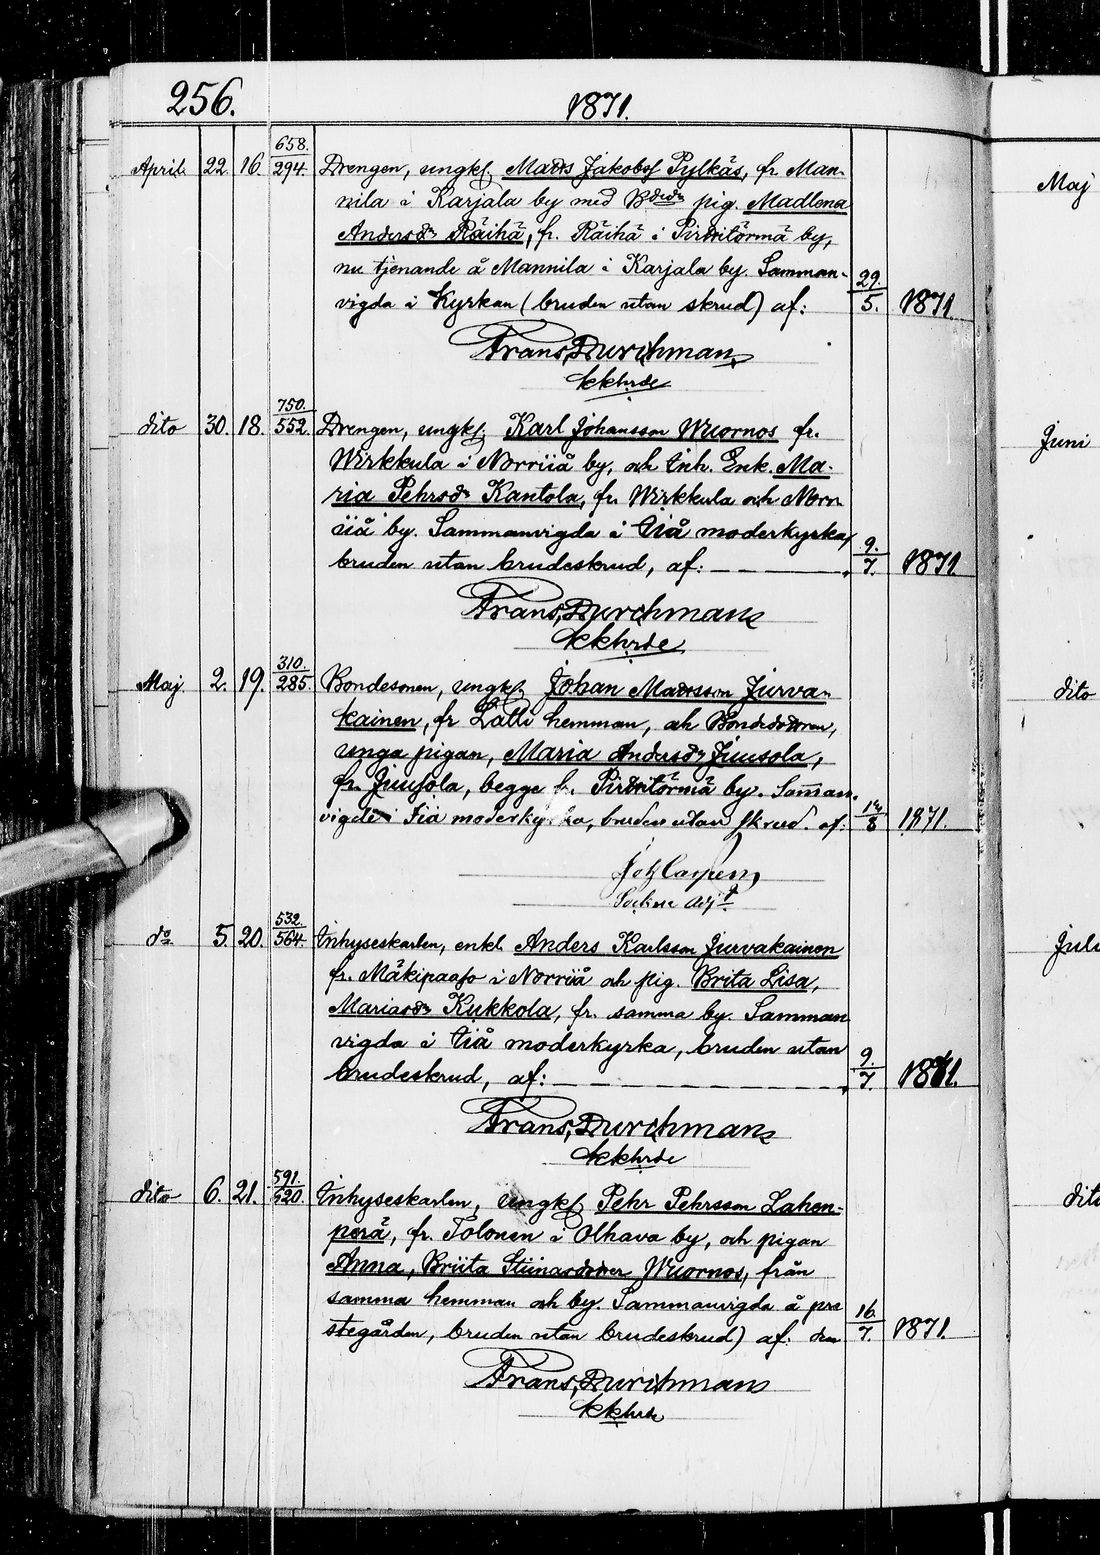 256. 1871.
658.
April 22. 16. 294. Drengen, ungkl. Matts Jakobss. Pylkäs, fr. Man-
nila i Karjala by med Bdedr pig. Madlena
Andersdr Räihä, fr. Räihä i Pirttitörmä by,
nu tjenande å Mannila i Karjala by. Samman- 29.
vigda i Kyrkan (bruden utan skrud) af: 5. 1871.
Frans Durchman,
Kkhrde
750.
dito 30. 18. 552. Drengen, ungkl. Karl Johansson Wuornos fr.
Wirkkula i Norriiå by, och Inh. Enk. Ma-
ria Pehrsdr Kantola, fr. Wirkkula och Norr-
iiå by. Sammanvigda i Iiå moderkyrka, 9.
bruden utan brudeskrud, af: 7. 1871
Frans Durchman
Kkhrde
310.
Maj 2. 19. 285. Bondesonen, ungkl. Johan Mattsson Jurva-
kainen, fr Latti hemman, och Bondedottren,
unga pigan, Maria Andersdr Juusola,
fr. Juusola, begge fr. Pirttitörmä by. Samman-
vigde i Iiå moderkyrka, bruden utan skrud. af: 8 1871.
Joh Carpen,
Sockne Adjt
532.
do 5. 20. 564. Inhyseskarlen, enkl. Anders Karlsson Jurvakainen
fr. Mäkipaaso i Norriiå och pig. Brita Lisa,
Mariasdr Kukkola, fr. samma by. Samman
vigda i Iiå moderkyrka, bruden utan 9.
brudeskrud, af: 7. 1871.
Frans Durchman
Kkhrde
591.
dito 6. 21. 620. Inhyseskarlen, ungkl. Pehr Pehrsson Lahen-
perä, fr. Tolonen i Olhava by, och pigan
Anna, Briita Stiinasdotter Wuornos, från
samma hemman och by. Sammanvigda å pre 16.
stegården, bruden utan brudeskrud) af: den 7. 1871.
Frans Durchman
Kkhrde
Maj
Juni
dito
Juli
dito